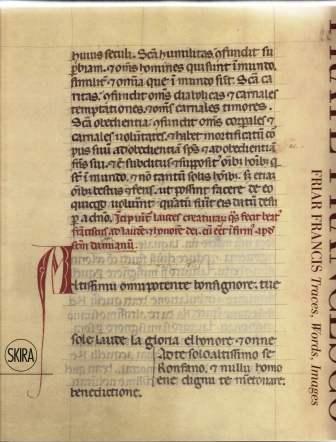 huius seculi. Scā humilitas ꝯfundit su
ꝑbiam. ⁊ oms homines qui sunt ī mundo.
similit ⁊ omīa que ī mundo sūt. Scā ca
ritas. ꝯfundit oms diabolicas ⁊ carnales
temptationes. ⁊ oms carnales timores.
Scā obedientia. ꝯfundit oms corꝑales ⁊
carnales voluntates. ⁊ habet mortificatū co
pus suū ad obedientiā sps ⁊ ad obedientiā
fris sui. ⁊ ē subditus ⁊ supposit oībꝫ hoībꝫ q
st ī mundo. ⁊ nō tantū solis hoībꝫ. sꝫ etiā
oībꝫ bestijs ⁊ feris. ut possint facere de eo
quicqd voluerīt. quatū fuīt eis datū desu
ꝑ a dno. Incipiūt laudes creaturaꝝ qs fecit beat
franciscus ad laudē ⁊ honorē dei. cū eēt īfirm ap s
ctm damianū.
Altissimu onnipotente bonsignore. tue
sole laude la gloria elhonore ⁊ onne
Ad te solo altissimo se
Konfano. ⁊ nullu homo
ene dignu te mentouare.
benedictione.
SKIRA
FRIAR FRANCIS Traces, Words, Images